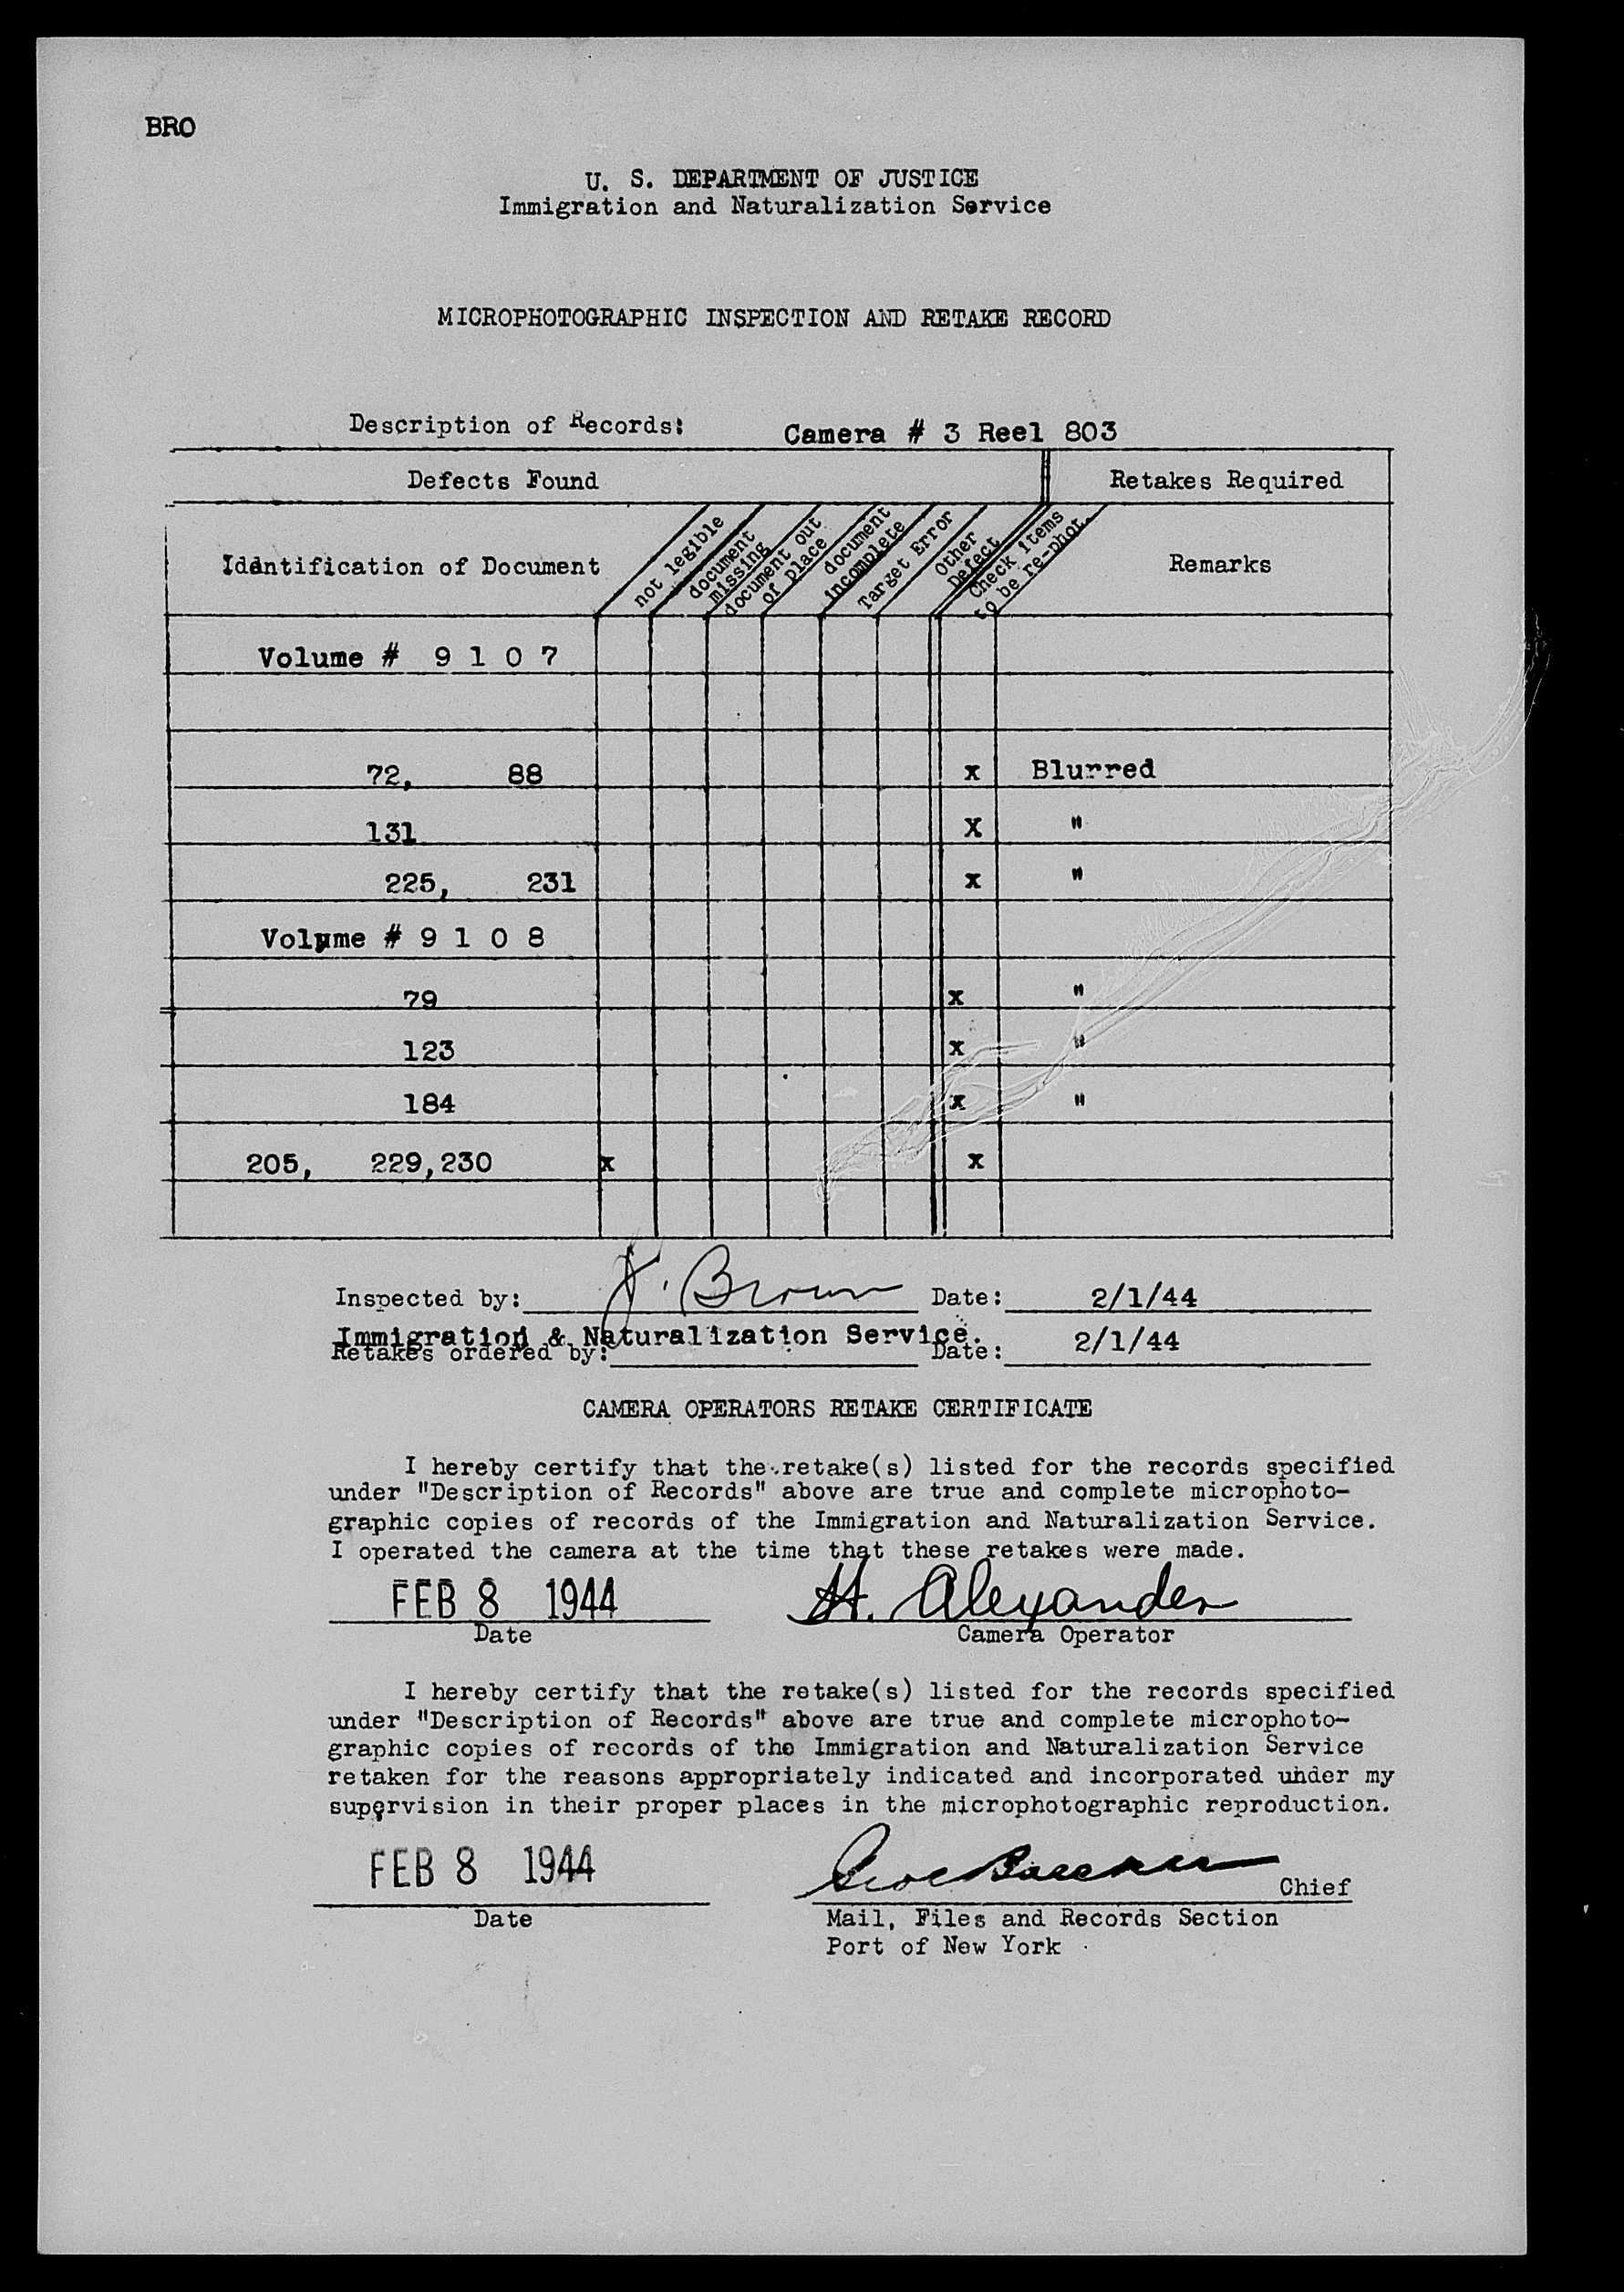 BRO
U. S. DEPARTMENT OF JUSTICE
Immigration and Naturalization Service
MICROPHOTOGRAPHIC INSPECTION AND RETAKE RECORD
Description of Records: Camera # 3 Reel 803
Defects Found Retakes Required
Identification of Document
not legible
document missing
document out of place
document incomplete
Target Error
Other Defect
Check items to be re-phot.
Remarks
Volume # 9 1 0 7
72, 88 x Blurred
131 X "
225, 231 x "
Volume # 9 1 0 8
79 x "
123 x "
184 x "
205, 229,230 x x
Inspected by: J. Brown Date: 2/1/44
Immigration & Naturalization Service.
Retakes ordered by: Date: 2/1/44
CAMERA OPERATORS RETAKE CERTIFICATE
I hereby certify that the retake(s) listed for the records specified
under "Description of Records" above are true and complete microphoto-
graphic copies of records of the Immigration and Naturalization Service.
I operated the camera at the time that these retakes were made.
FEB 8 1944 H. Alexander
Date Camera Operator
I hereby certify that the retake(s) listed for the records specified
under "Description of Records" above are true and complete microphoto-
graphic copies of records of the Immigration and Naturalization Service
retaken for the reasons appropriately indicated and incorporated under my
supervision in their proper places in the microphotographic reproduction.
FEB 8 1944 Chief
Date Mail, Files and Records Section
Port of New York